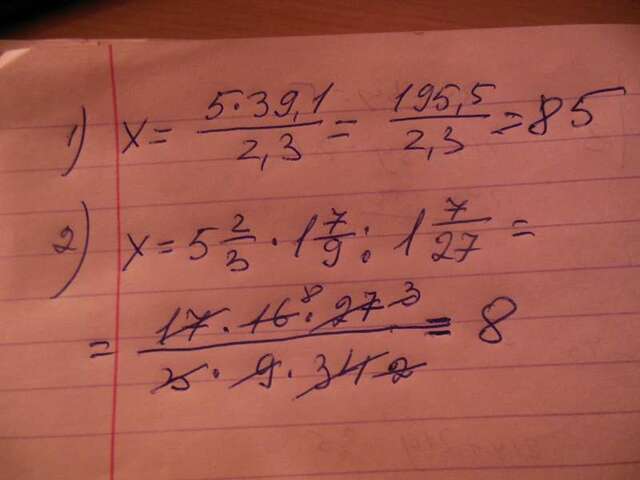 1) x = 5·39,1 / 2,3 = 195,5 / 2,3 = 85
2) x = 5 2/3 · 1 7/9 : 1 7/27 =
= 17·16 8·27 3 / 3·9·34 2 = 8